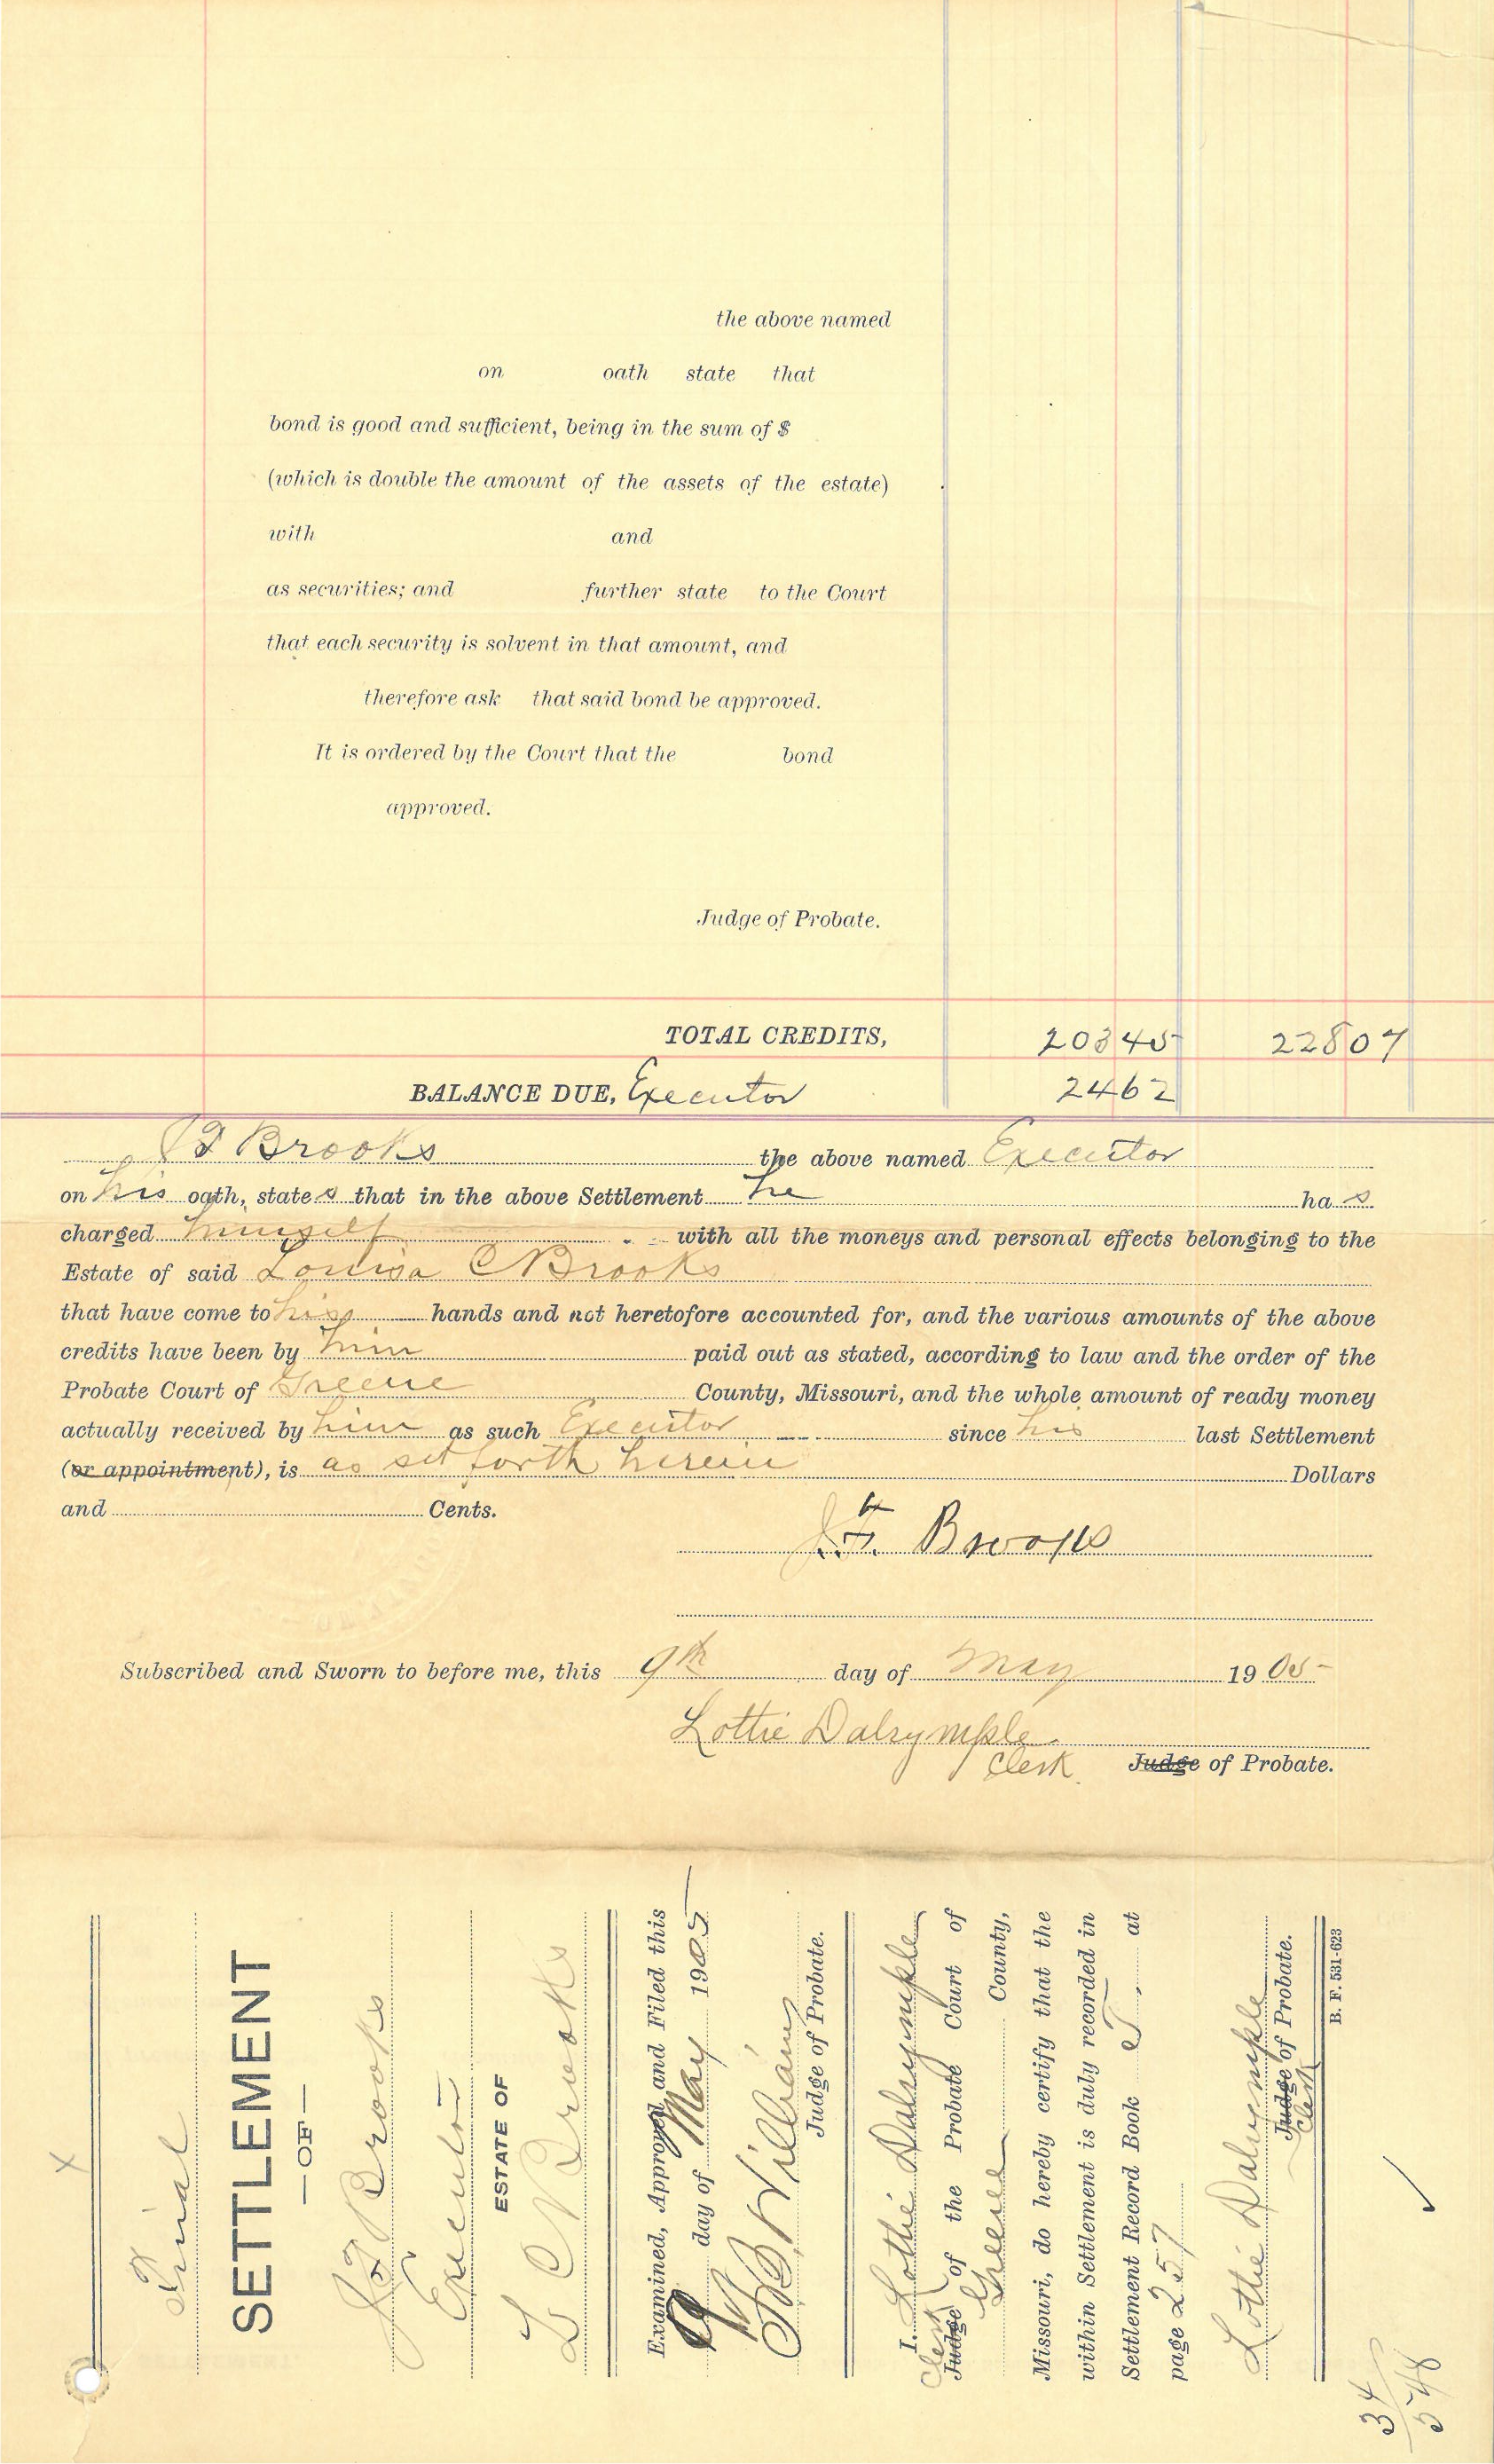 the above named
on oath state that
bond is good and sufficient, being in the sum of $
(which is double the amount of the assets of the estate)
with and
as securities; and further state to the Court
that each security is solvent in that amount, and
therefore ask that said bond be approved.
It is ordered by the Court that the bond
approved.
Judge of Probate.
TOTAL CREDITS, 20345 22807
BALANCE DUE, Executor 2462
Brooks the above named Executor
on his oath, states that in the above Settlement he has
charged himself with all the moneys and personal effects belonging to the
Estate of said Louisa C Brooks
that have come to his hands and not heretofore accounted for, and the various amounts of the above
credits have been by him paid out as stated, according to law and the order of the
Probate Court of Greene County, Missouri, and the whole amount of ready money
actually received by him as such Executor since his last Settlement
(or appointment), is as set forth herein Dollars
and Cents.
J. F. Brooks
Subscribed and Sworn to before me, this 9th day of May 1905
Lottie Dalrymple
Clerk Judge of Probate.
Final
SETTLEMENT
—OF—
J F Brooks
Executor
ESTATE OF
L C Brooks
Examined, Approved and Filed this
9 day of May 1905
Williams
Judge of Probate.
I, Lottie Dalrymple
Clerk Judge of the Probate Court of
Greene County,
Missouri, do hereby certify that the
within Settlement is duly recorded in
Settlement Record Book T, at
page 257
Lottie Dalrymple
Judge of Probate.
Clerk
B. F. 531-623
34
548